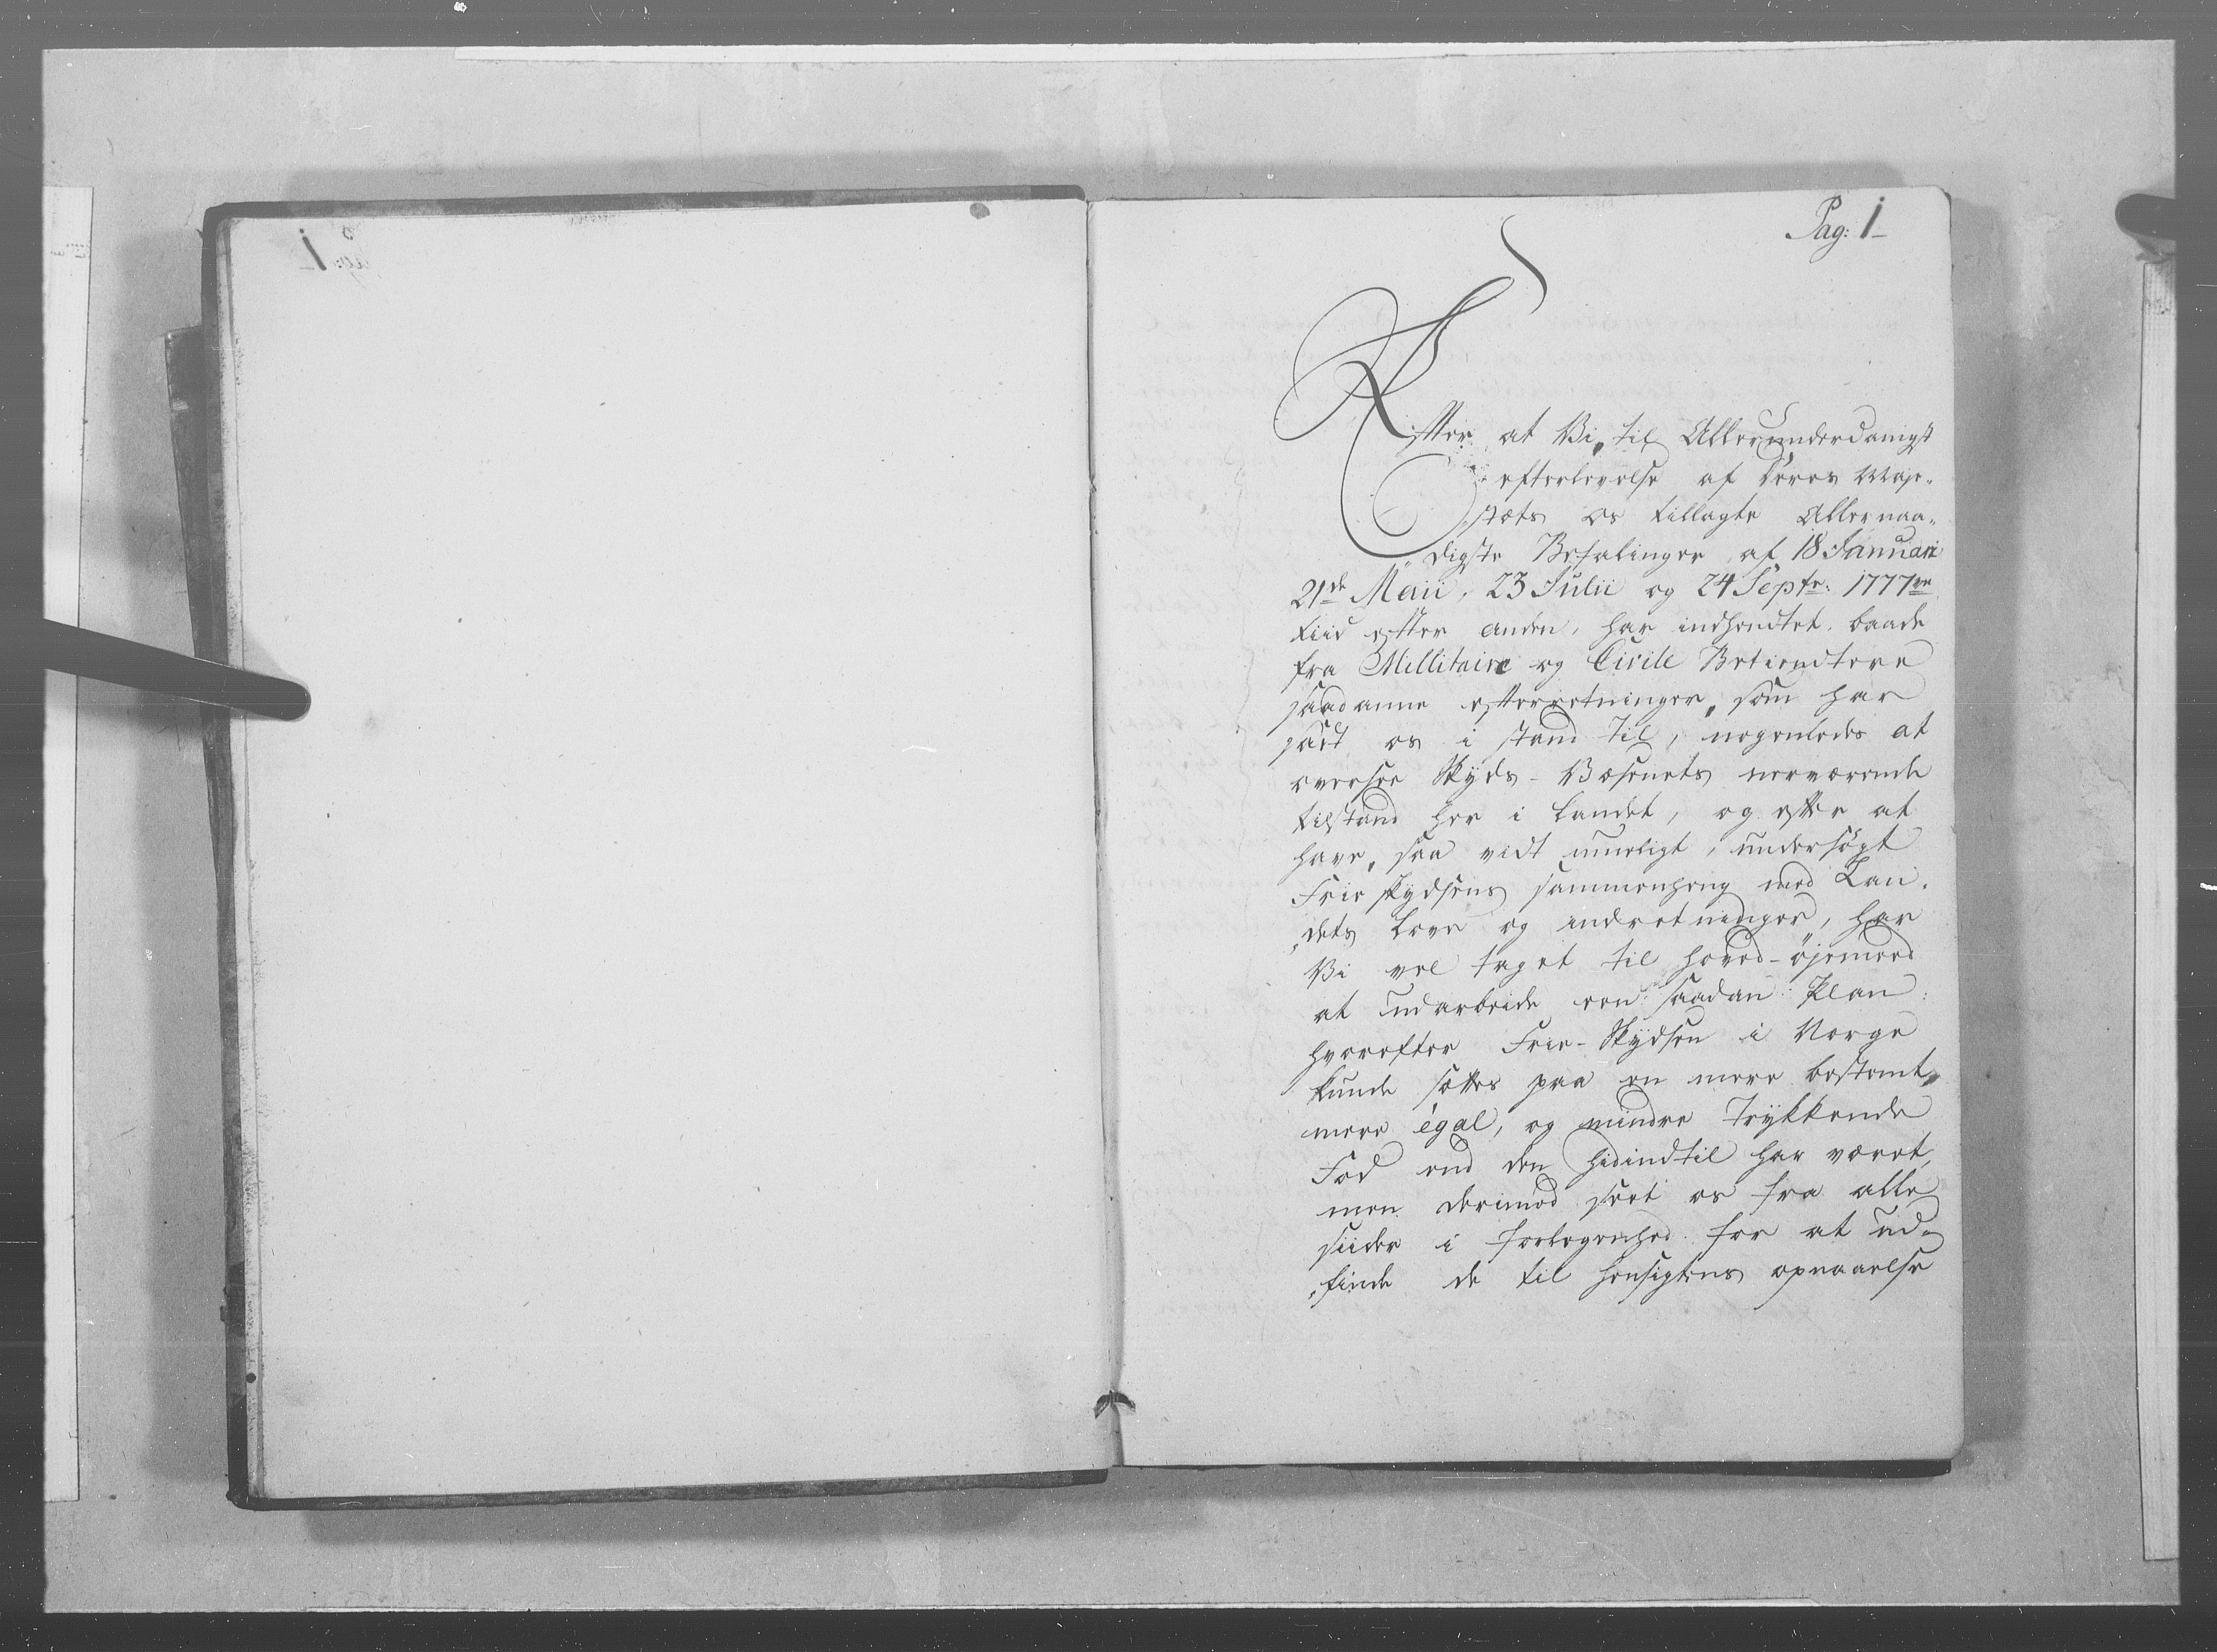 Pag: 1
Efter at Vi, til Allerunderdanigst
efterlevelse af Deres Maje-
stæts os tillagte Allernaa-
digste Befalinger af 18 Januari
21de Maii, 23 Julii og 24 Septr: 1777
tiid efter anden, har indhendtet baade
fra Millitaire og Civile Betiendtere
saadanne efterretninger, som har
sadt os i stand til, nogenledes at
oversee Skyds-Væsenets nerværende
tilstand her i Landet, og efter at
have, saa vidt mueligt, undersögt
Frie skydsens sammenheng med Lan-
dets Love og indretninger, har
Vi vel taget til hoved-öjemeed
at udarbeide een saadan Plan
hvorefter Frie-Skydsen i Norge
kunde sættes paa en mere bestemt,
mere égal, og mindre Trykkende
Fod end den hidindtil har været,
men derimod seet os fra alle
siider i forlegenhed for at ud-
finde de til hensigtens opnaaelse